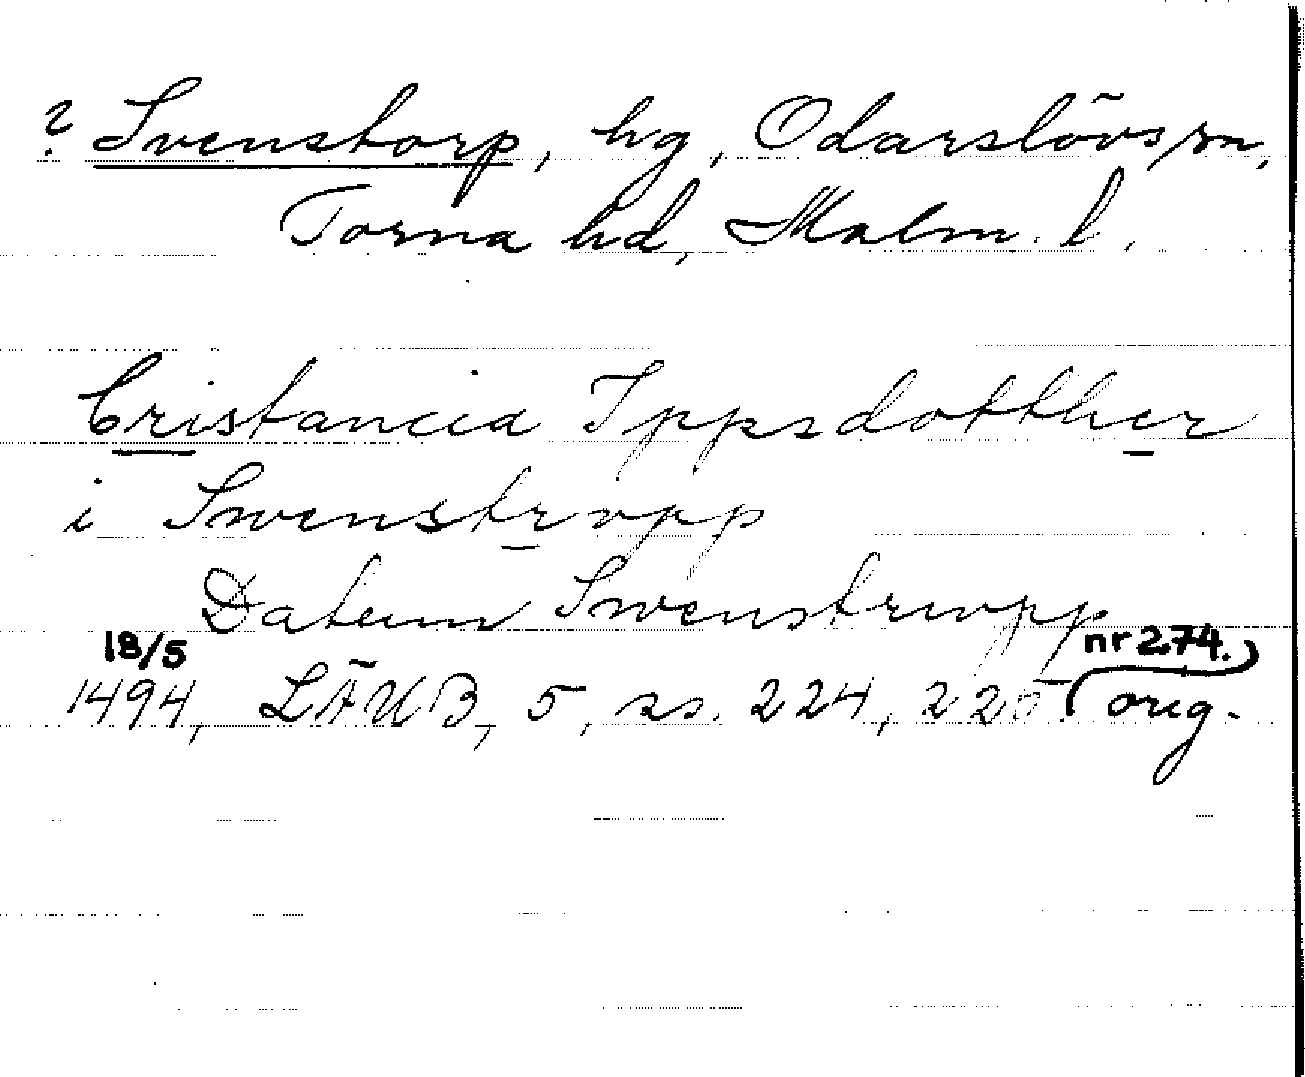 ? Svenstorp, hg, Odarslövs sn,
Torna hd, Malm. l.
Cristancia Ippsdotther
i Swenstrvpp
Datum Swenstrvpp
18/5 nr 274.)
1494, LÄUB, 5, ss. 224, 225 (orig.